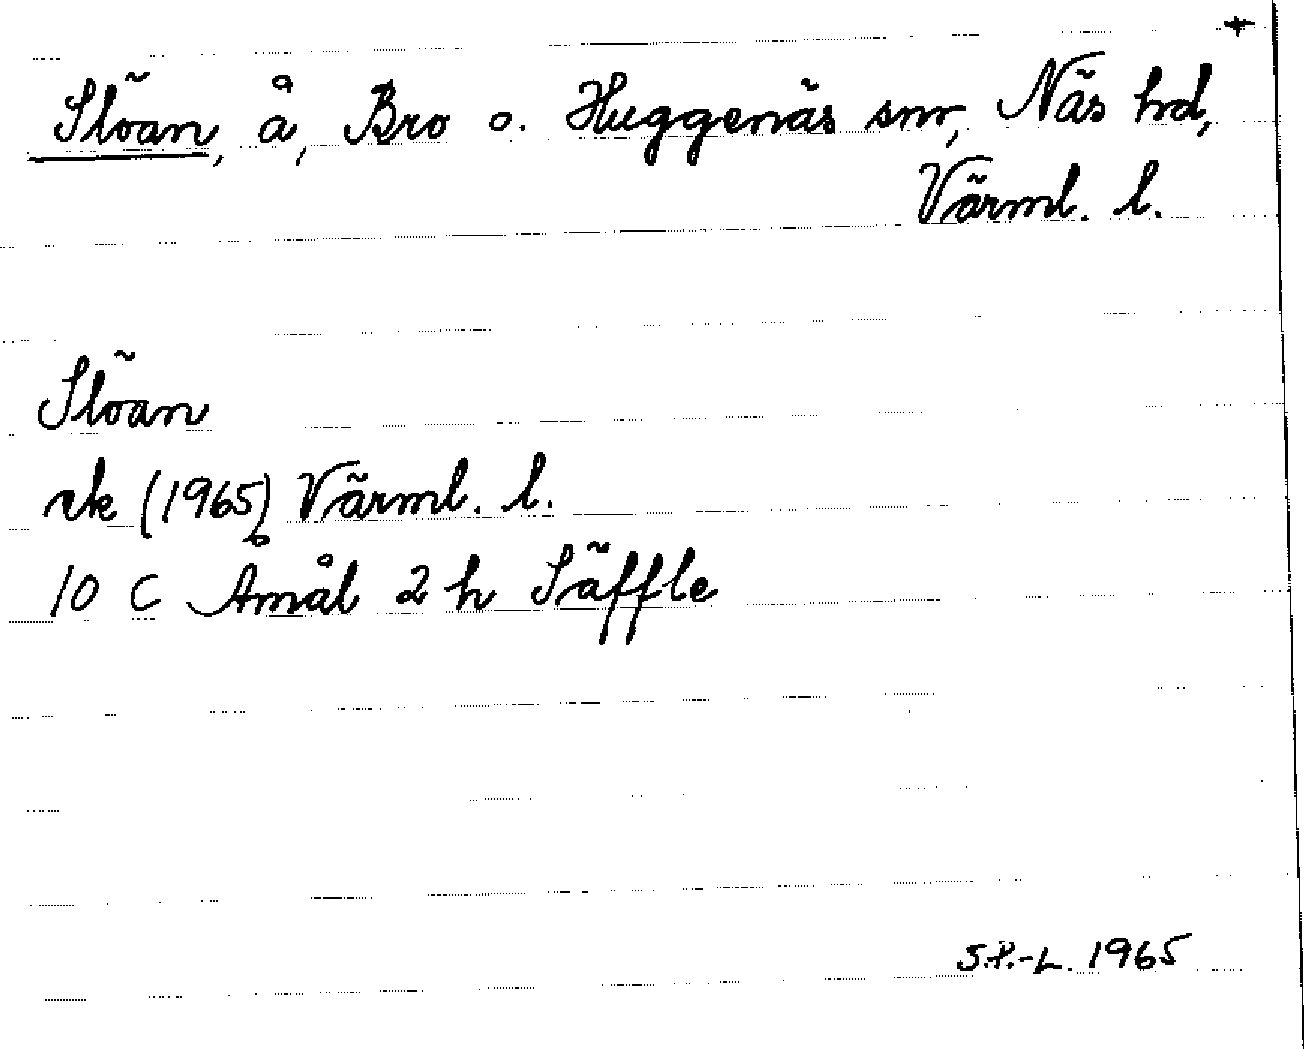 +
Slöan, å, Bro o. Huggenäs snr, Näs hd,
Värml. l.
Slöan
rk (1965) Värml. l.
10 C Åmål 2 h Säffle
S.P.-L. 1965